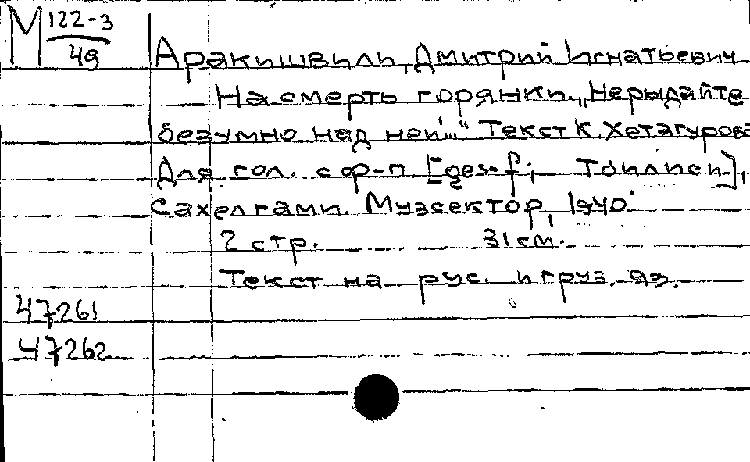 М 122-3
49
Аракишвили, Дмитрий Игнатьевич
На смерть горянки „Нерыдайте
безумно над ней..." Текст К. Хетагурова
Для гол. с ф-п [ges-f; Тбилиси],
Сахелгами. Музсектор, 1940.
2 стр. 31 см.
Текст на рус. и груз. яз.
47261
47262